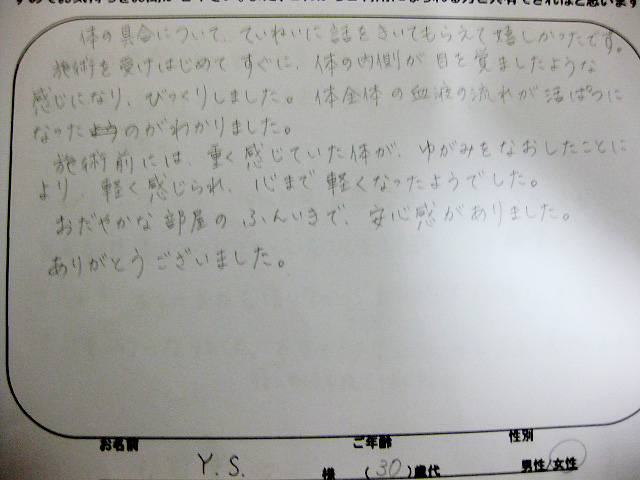 体の具合について、ていねいに話をきいてもらえて嬉しかったです。
施術を受けはじめて すぐに、体の内側が目を覚ましたような
感じになり、びっくりしました。体全体の血液の流れが活ぱつに
なった のがわかりました。
施術前には、重く感じていた体が、ゆがみをなおしたことに
より、軽く感じられ、心まで軽くなったようでした。
おだやかな部屋のふんいきで、安心感がありました。
ありがとうございました。
お名前 ご年齢 性別
Y.S. 様 (30)歳代 男性/女性